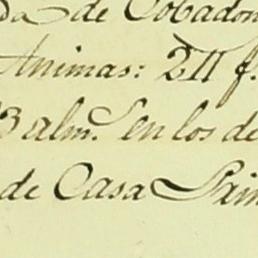 de Cobadon
Animas: 211 f.
3 alm.s en los de
de Casa